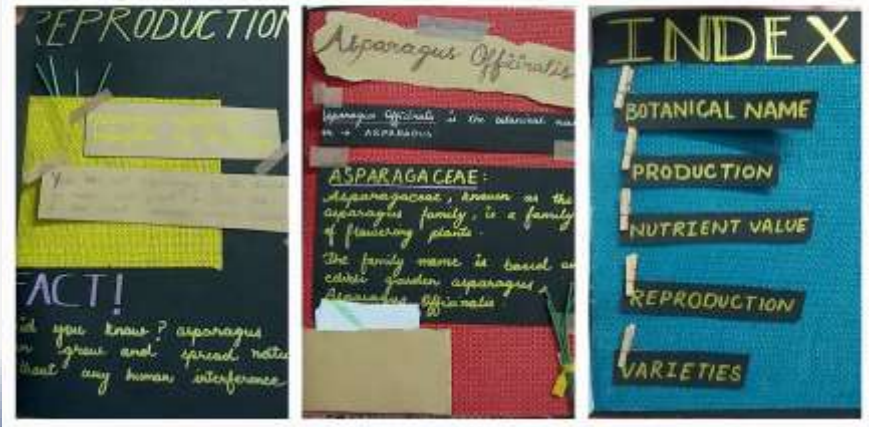 REPRODUCTION
FACT!
id you know? asparagus
n grow and spread natu
thout any human interference
Asparagus Officinalis
Asparagus Officinalis is the botanical nam
ASPARAGUS
ASPARAGACEAE:
Asparagaceae, known as the
asparagus family, is a family
of flowering plants.
The family name is based on
edible garden asparagus,
Asparagus officinalis
INDEX
BOTANICAL NAME
PRODUCTION
NUTRIENT VALUE
REPRODUCTION
VARIETIES